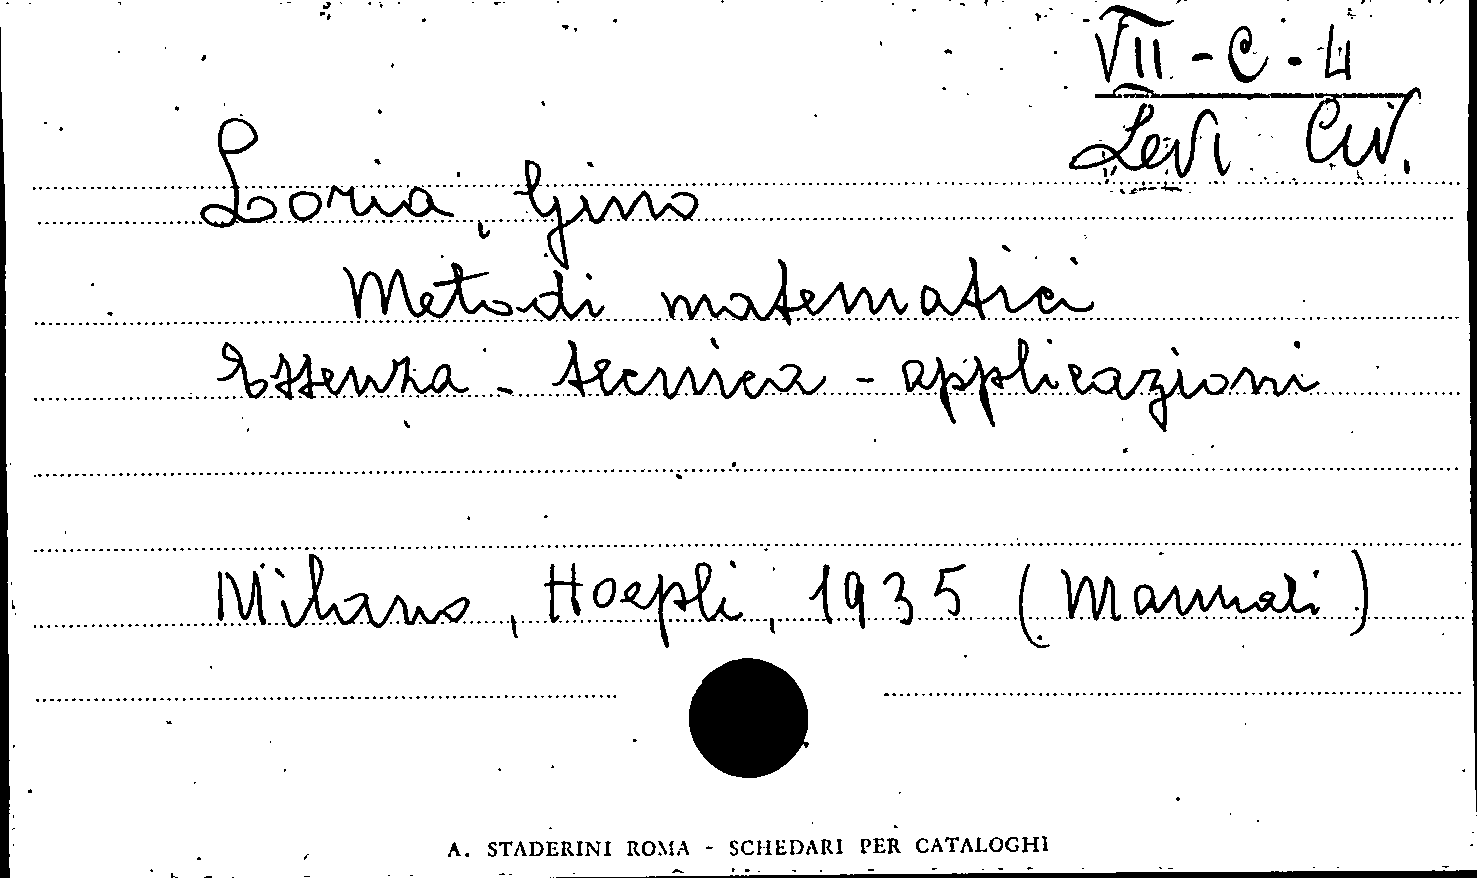 VII - C - 4
Levi Civ.
Loria, Gino
Metodi matematici
Essenza - tecnica - applicazioni
Milano, Hoepli, 1935 (Manuali)
A. STADERINI ROMA - SCHEDARI PER CATALOGHI